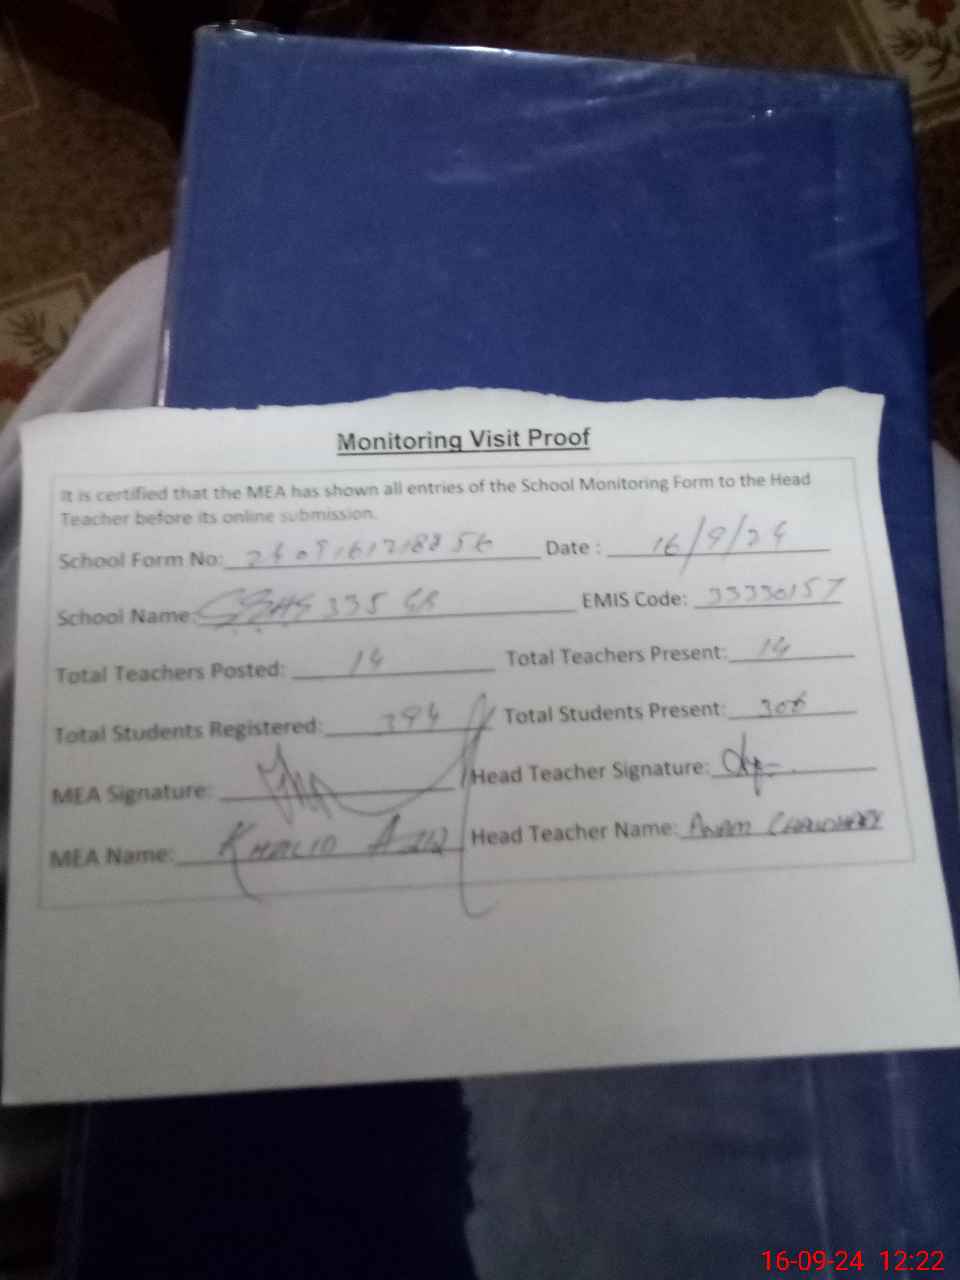 Monitoring Visit Proof
It is certified that the MEA has shown all entries of the School Monitoring Form to the Head
Teacher before its online submission.
School Form No: Date : 16/9/24
School Name: 335 GB EMIS Code: 33330157
Total Teachers Posted: 14 Total Teachers Present: 14
Total Students Registered: 394 Total Students Present: 306
MEA Signature: Head Teacher Signature:
MEA Name: Khalid Aziz Head Teacher Name: Anam Chaudhary
16-09-24 12:22